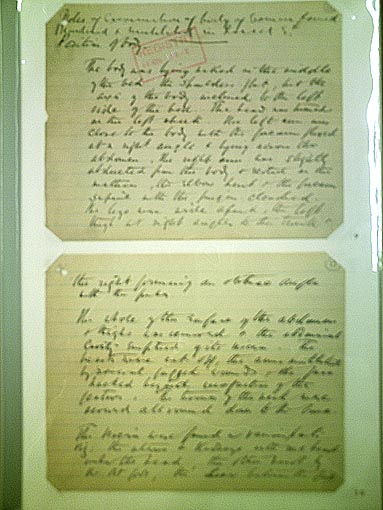 Notes of Examination of body of Woman found
Murdered & mutilated in Dorset St.
Position of body
The body was lying naked in the middle
of the bed, the shoulders flat, but the
axis of the body inclined to the left
side of the bed. The head was turned
on the left cheek. The left arm was
close to the body with the forearm flexed
at a right angle & lying across the
abdomen, the right arm was slightly
abducted from the body & rested on the
mattress, the elbow bent & the forearm
supine with the fingers clenched.
The legs were wide apart, the left
thigh at right angles to the trunk &
the right forming an obtuse angle
with the pubes.
The whole of the surface of the abdomen
& thighs was removed & the abdominal
Cavity emptied of its viscera. The
breasts were cut off, the arms mutilated
by several jagged wounds & the face
hacked beyond recognition of the
features. The tissues of the neck were
severed all round down to the bone.
The viscera were found in various parts
viz: the uterus & Kidneys with one breast
under the head, the other breast by
the Rt foot, the Liver between the feet